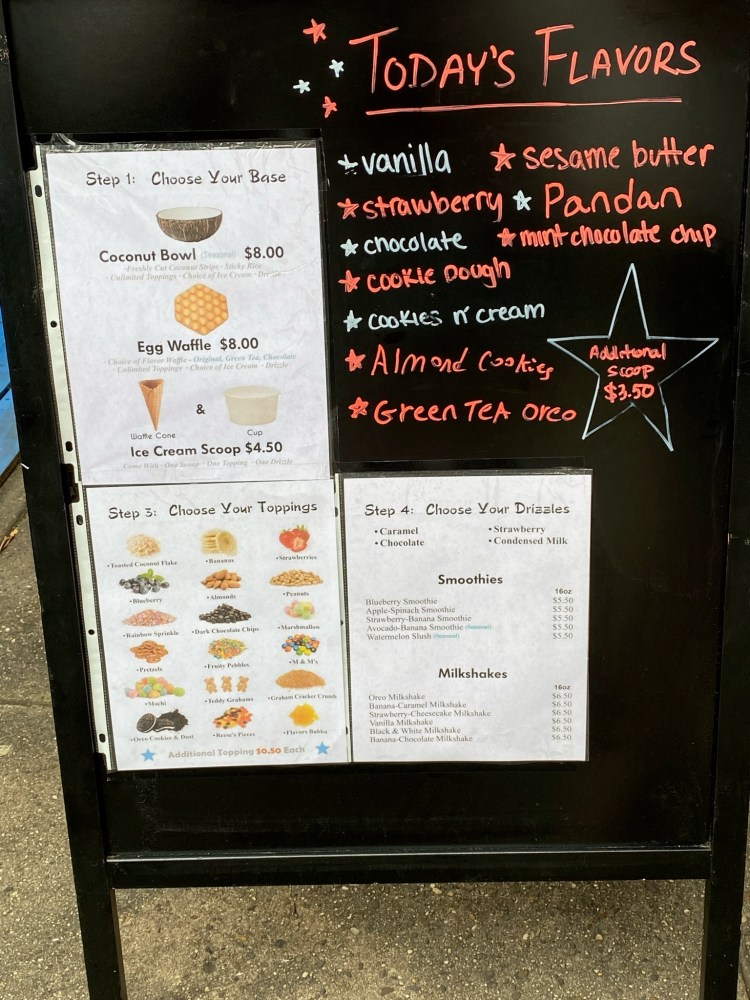 TODAY'S FLAVORS
vanilla
sesame butter
strawberry
Pandan
chocolate
mint chocolate chip
cookie Dough
cookies n' cream
Almond Cookies
Green TEA oreo
Additional
scoop
$3.50
Step 1: Choose Your Base
Coconut Bowl (Seasonal) $8.00
·Freshly Cut Coconut Strips · Sticky Rice
· Unlimited Toppings · Choice of Ice Cream · Drizzle
Egg Waffle $8.00
· Choice of Flavor Waffle - Original, Green Tea, Chocolate
· Unlimited Toppings · Choice of Ice Cream · Drizzle
Waffle Cone
&
Cup
Ice Cream Scoop $4.50
Come With · One Scoop · One Topping · One Drizzle
Step 3: Choose Your Toppings
•Toasted Coconut Flake
•Bananas
•Strawberries
•Blueberry
•Almonds
•Peanuts
•Rainbow Sprinkle
•Dark Chocolate Chips
•Marshmallow
•Pretzels
•Fruity Pebbles
•M & M's
•Mochi
•Teddy Grahams
•Graham Cracker Crumb
•Oreo Cookies & Dust
•Reese's Pieces
•Flavors Bubba
Additional Topping $0.50 Each
Step 4: Choose Your Drizzles
• Caramel
• Strawberry
• Chocolate
• Condensed Milk
Smoothies
16oz
Blueberry Smoothie $5.50
Apple-Spinach Smoothie $5.50
Strawberry-Banana Smoothie $5.50
Avocado-Banana Smoothie (Seasonal) $5.50
Watermelon Slush (Seasonal) $5.50
Milkshakes
16oz
Oreo Milkshake $6.50
Banana-Caramel Milkshake $6.50
Strawberry-Cheesecake Milkshake $6.50
Vanilla Milkshake $6.50
Black & White Milkshake $6.50
Banana-Chocolate Milkshake $6.50